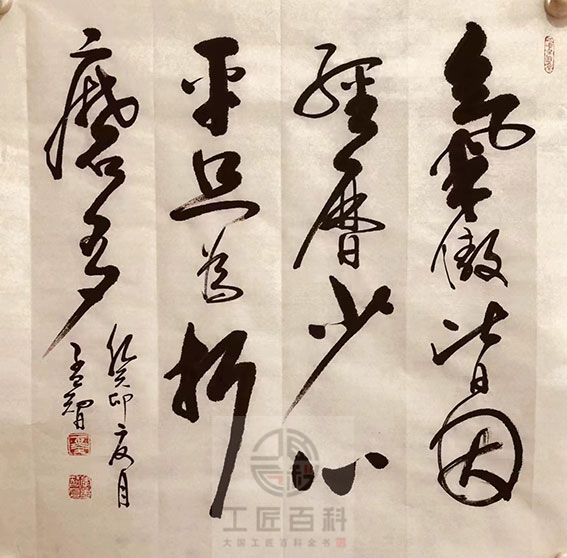 氣傲皆因
經曆少心
平只為折
磨多
癸卯夏月
孟智
工匠百科
大国工匠百科全书